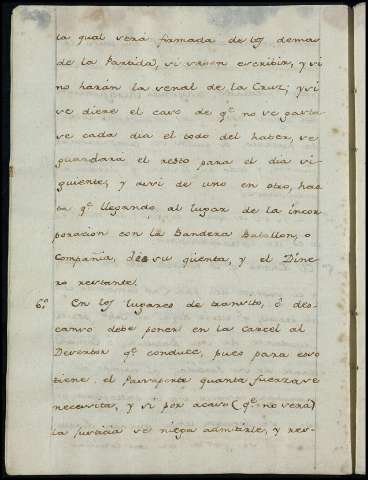 la qual será firmada de los demas
de la Partida, si saven escribir, y si
no harán la señal de la Cruz; y si
se diere el caso de qᵉ no se gasta
se cada dia el todo del haber, se
guardará el resto para el dia si-
guiente; y asi de uno en otro, has
ta qᵉ llegando al lugar de la incor
poracion con la Bandera Batallon, o
Compañia, dé su qüenta, y el Dine
ro restante.
6.º En los lugares de transito, ó des-
canso debe poner en la carcel al
Desertor qᵉ conduce, pues para esso
tiene el Passaporte quanta fuerza se
necesita, y si por acaso (qᵉ no será)
la Justicia se niega admitirle, y res-